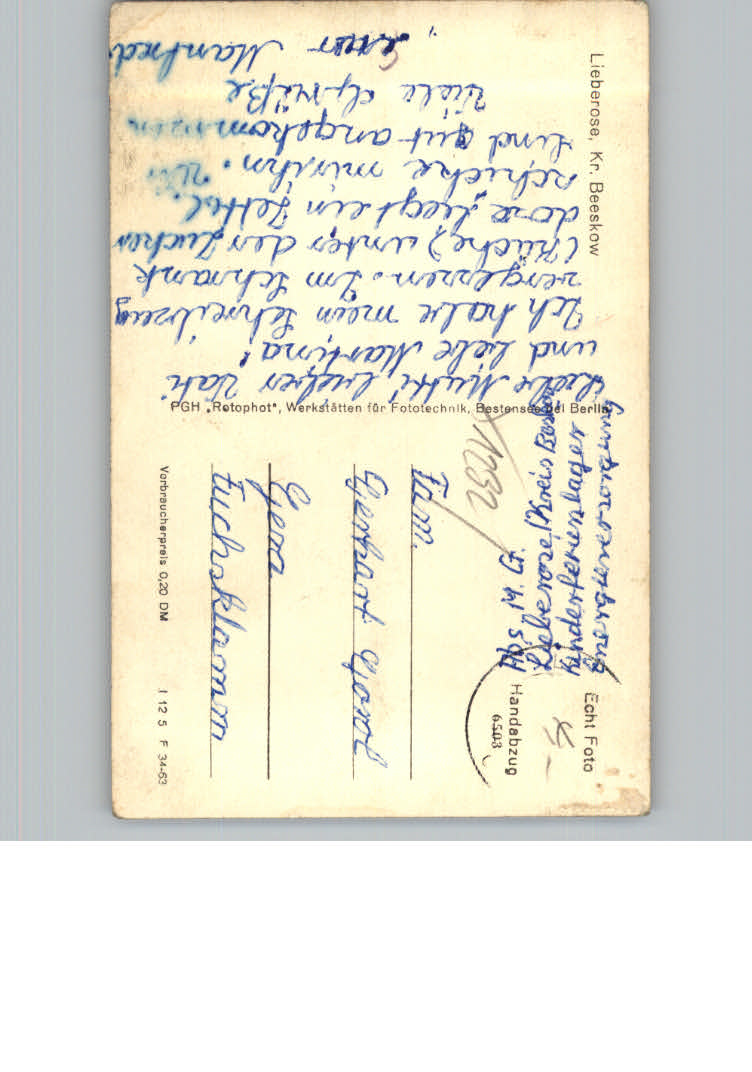 Lieberose, Kr. Beeskow
Liebe Mutti, lieber Vati
und liebe Martina!
Ich habe mein Schreibzeug
vergessen. Im Schrank
(Küche) unter der Zucker
dose liegt ein Zettel.
schicke mir ihn. Wir
sind gut angekommen
Viele Grüße
Euer Manfred
PGH „Rotophot“, Werkstätten für Fototechnik, Bestensee bei Berlin
Echt Foto
Handabzug
6503
Abs. M. G.
Lieberose (Kreis Beeskow
Kinderferienlager
1232
Fam.
Gerhart
Gera
Fuchsklamm
Verbraucherpreis 0,20 DM
I 12 5 F 34-63